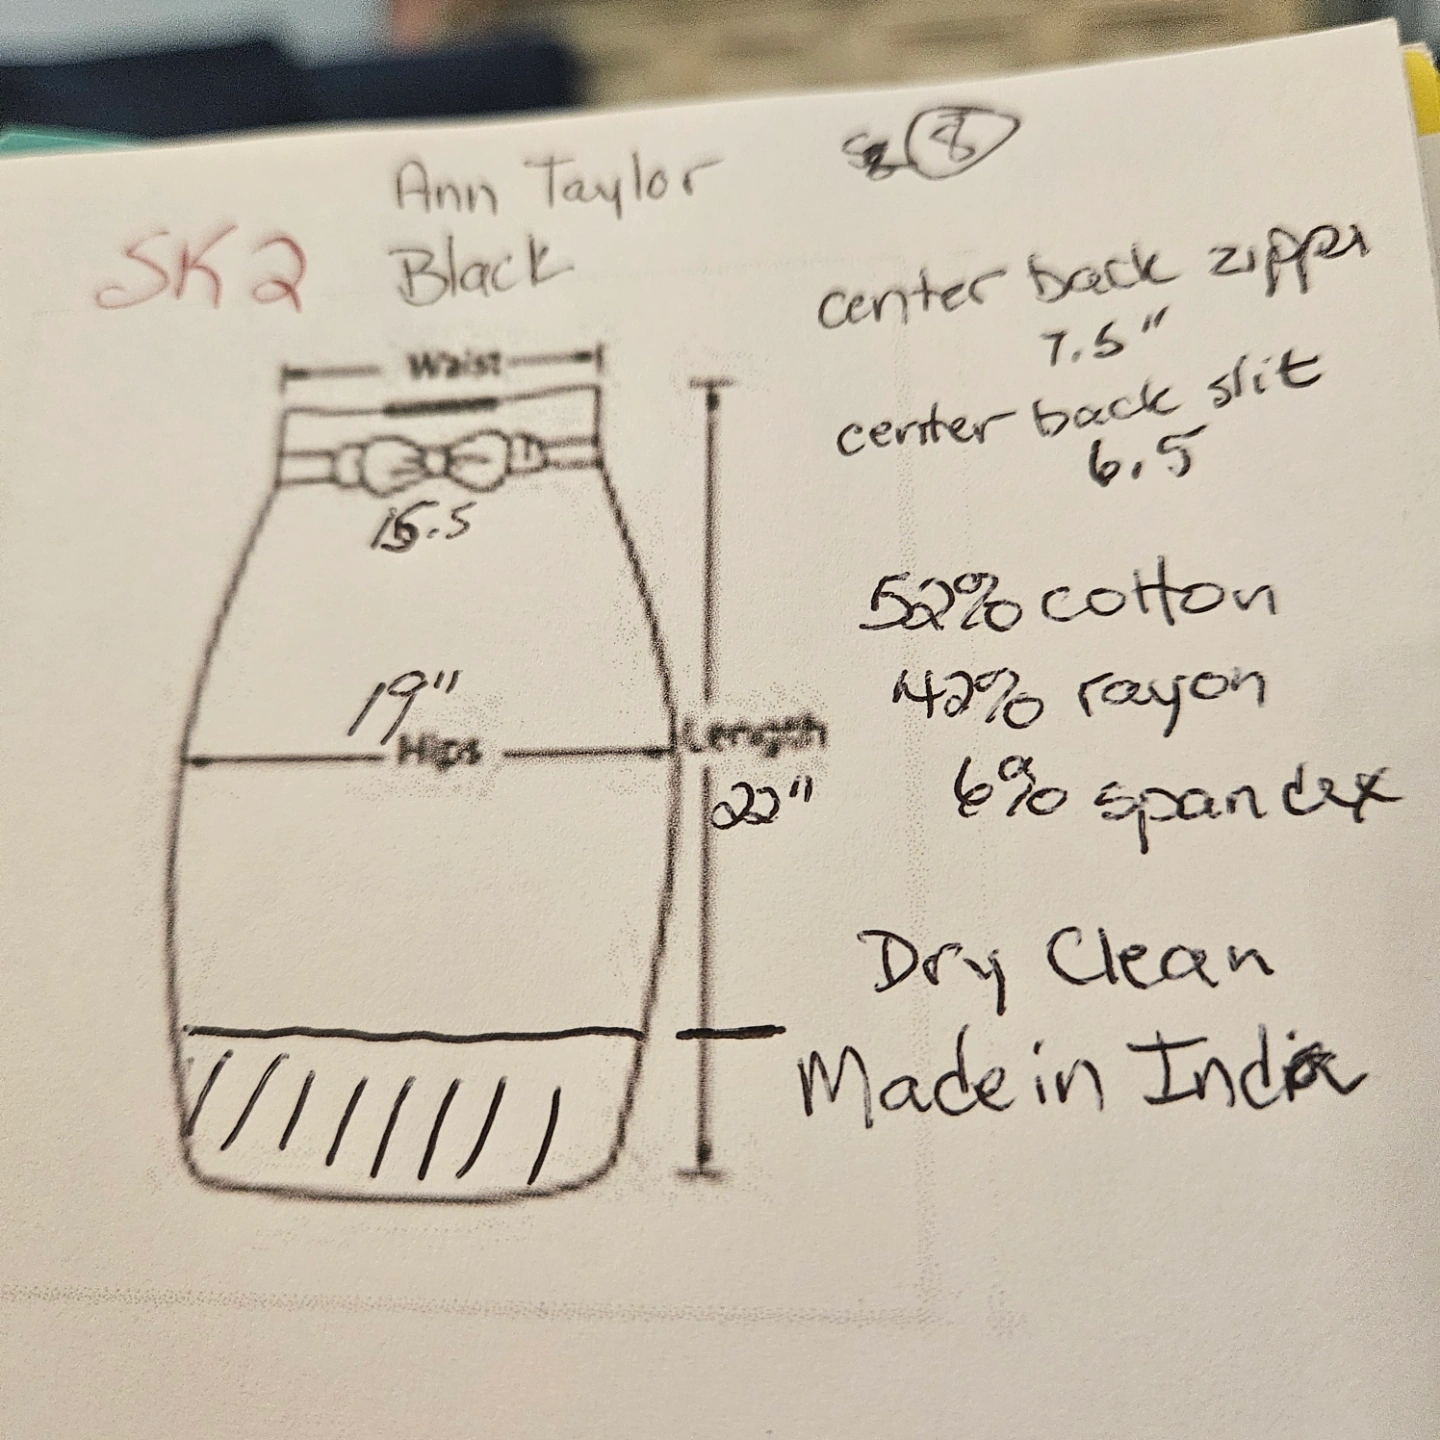 Ann Taylor
sz 8
SK2
Black
center back zipper
7.5"
center back slit
6.5
Waist
15.5
52% cotton
42% rayon
6% spandex
19"
Hips
Length
22"
Dry Clean
Made in India